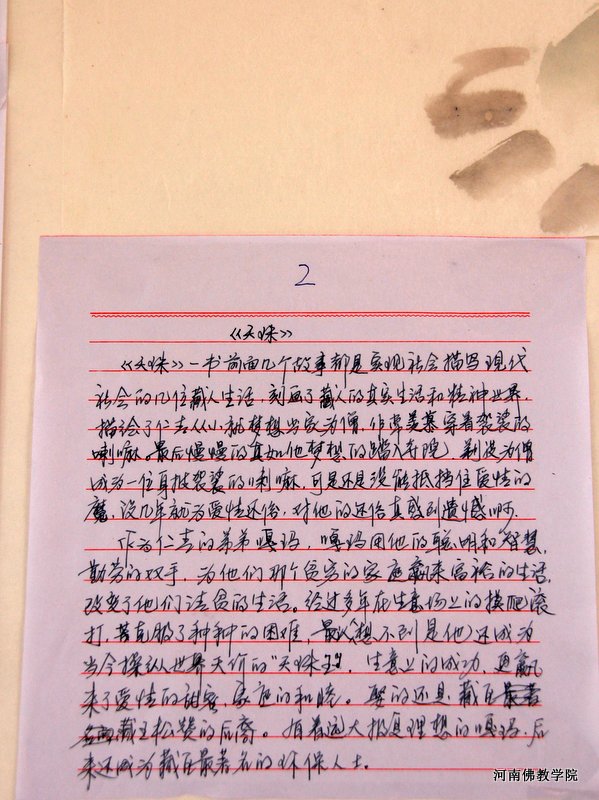 2
《天珠》
《天珠》一书前面几个故事都是实现社会描写现代
社会的几位藏人生活,刻画了藏人的真实生活和精神世界.
描绘了仁青从小就梦想出家为僧,非常羡慕穿着袈裟的
喇嘛.最后慢慢的真如他梦想的踏入寺院,剃没为僧
成为一位身披袈裟的喇嘛,可是还是没能抵挡住爱情的
魔,没几年就为爱情还俗,对他的还俗真感到遗憾啊.
作为仁青的弟弟嘎玛,嘎玛用他的聪明和智慧,
勤劳的双手,为他们那个贫穷的家庭赢来富裕的生活,
改变了他们清贫的生活。经过多年在生意场上的摸爬滚
打,克服了种种的困难,最后(想不到是他)还成为
当今操纵世界天价的"天珠王",生意上的成功,更赢
来了爱情的甜蜜,家庭的和睦。娶的还是藏民
藏王松赞的后裔。有着远大报复理想的嘎玛,后
来还成为藏民最著名的环保人士.
河南佛教学院